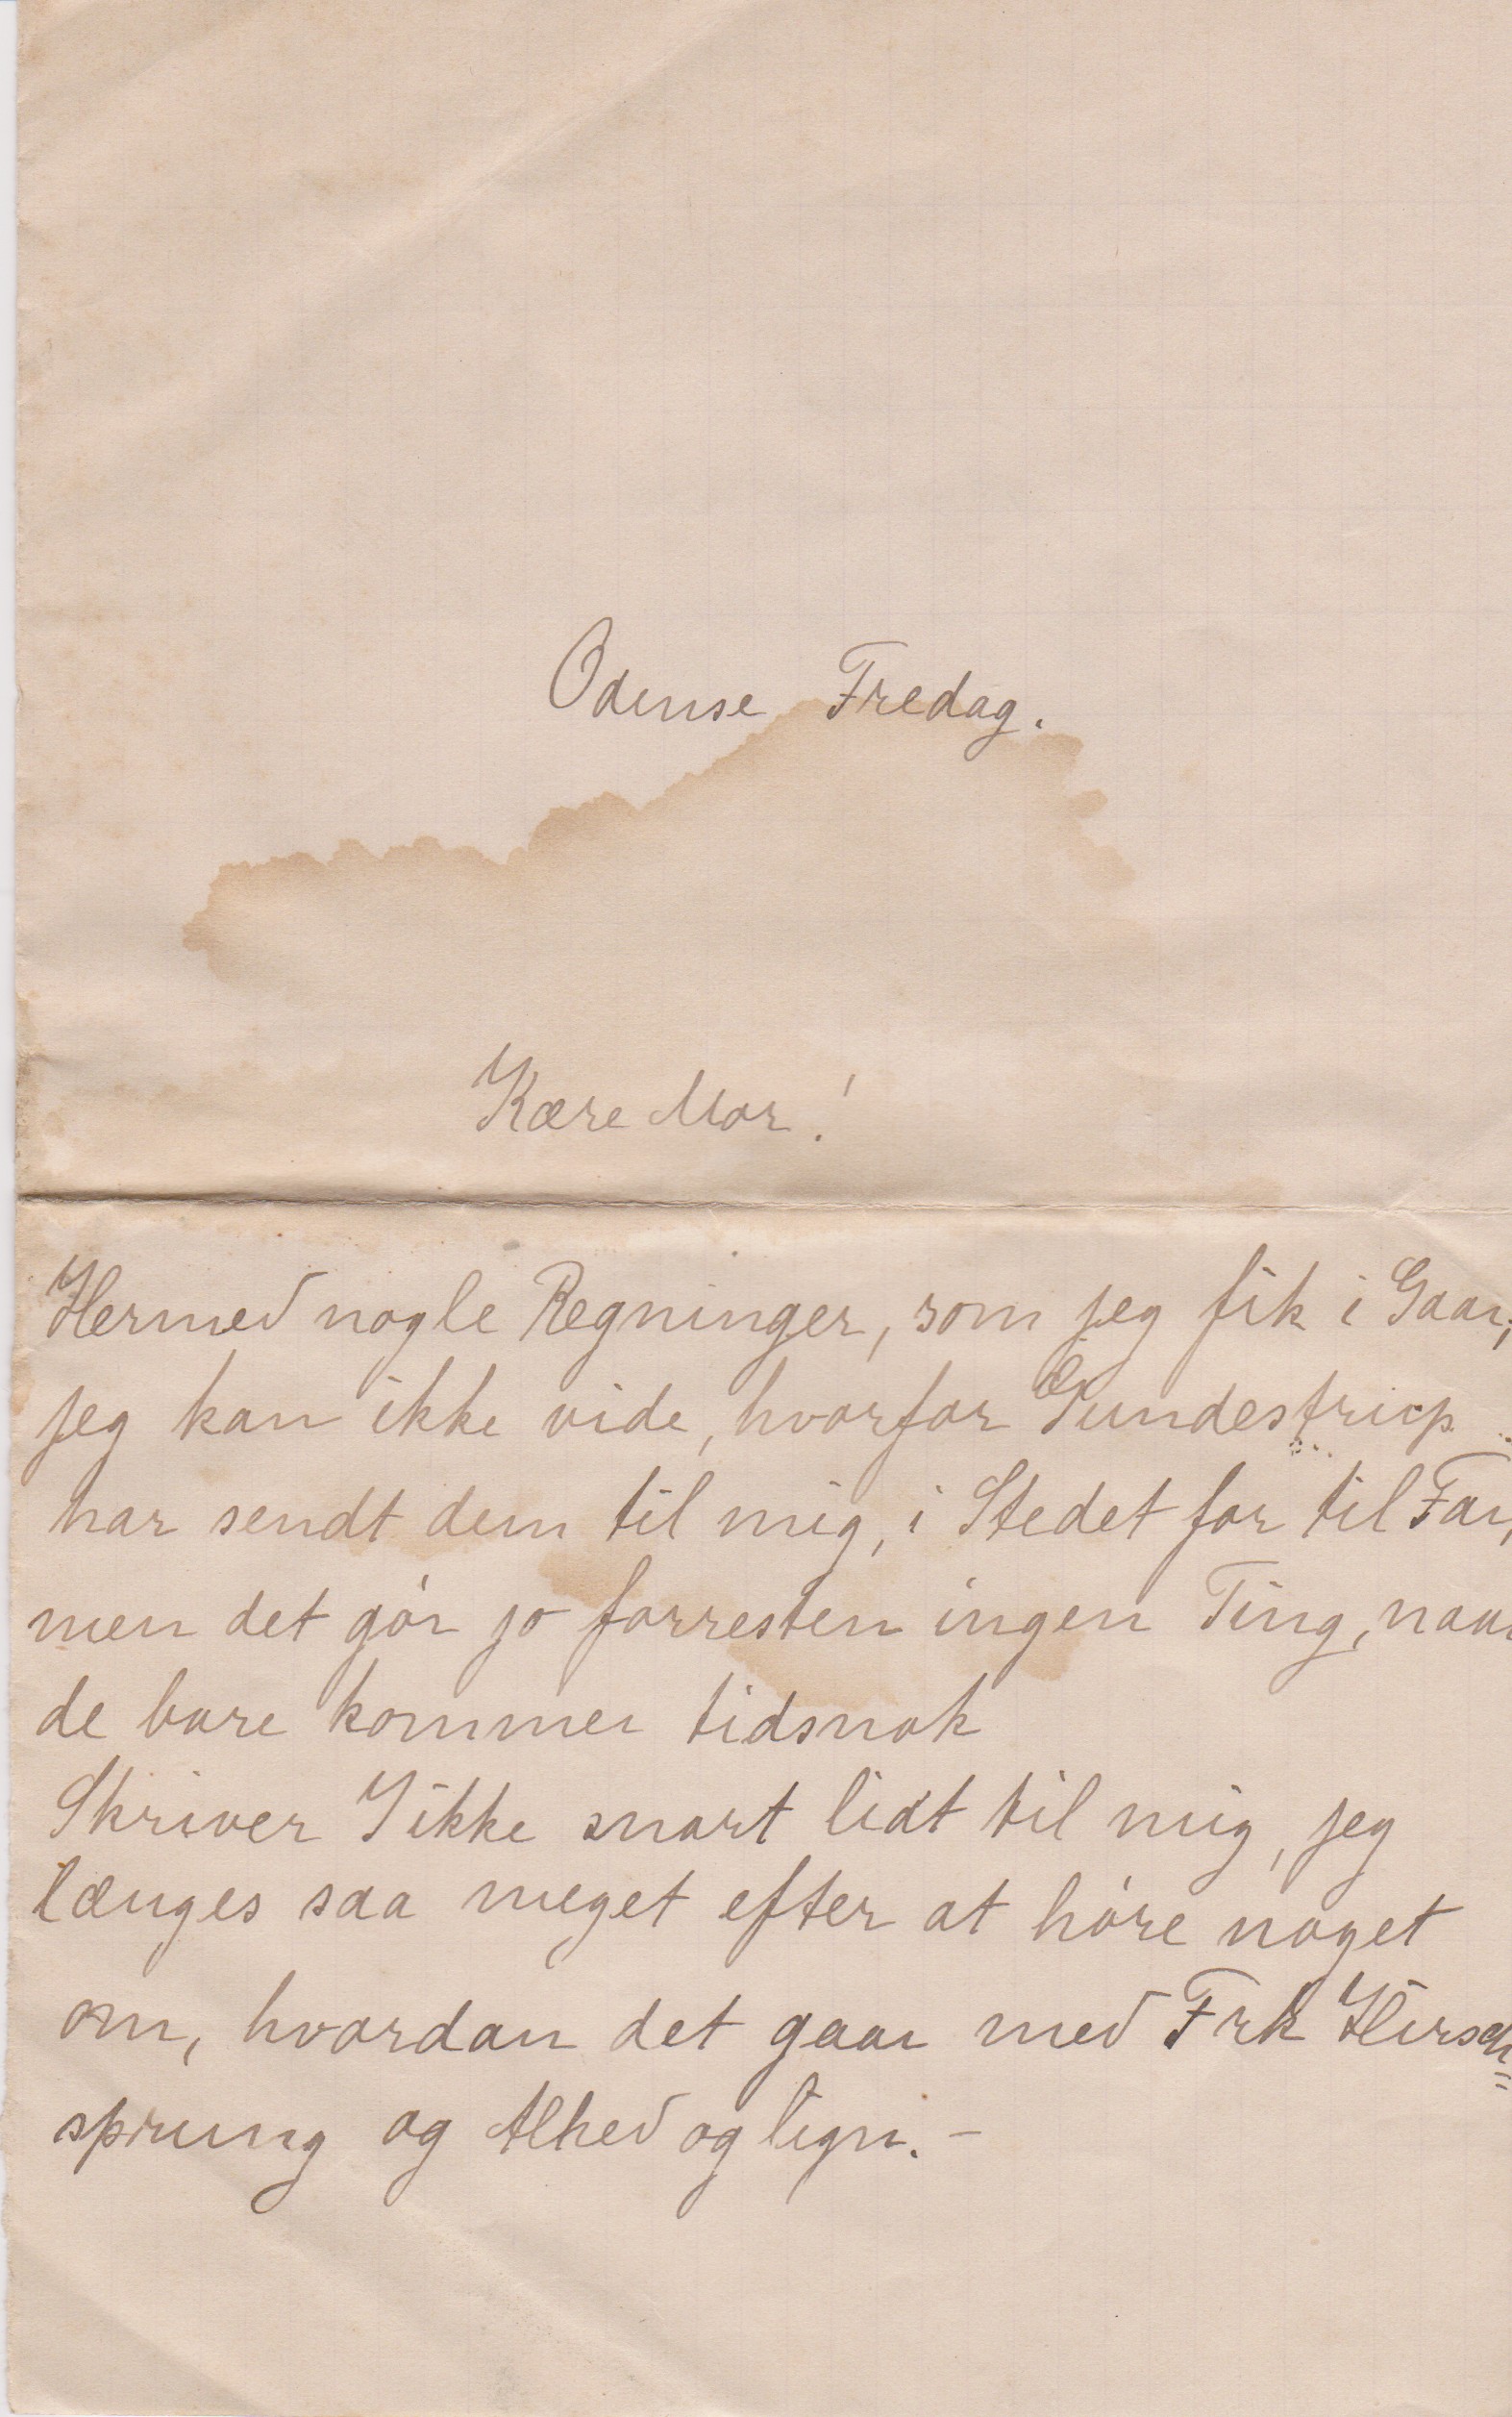 Odense Fredag.
Kære Mor!
Hermed nogle Regninger, som jeg fik i Gaar,
jeg kan ikke vide, hvorfor Gundestrup
har sendt dem til mig, i Stedet for til Far,
men det gör jo forresten ingen Ting, naar
de bare kommer tidsnok
Skriver I ikke snart lidt til mig, jeg
længes saa meget efter at höre noget
om, hvordan det gaar med Frk Hirsch=
sprung og Alhed og lign. –